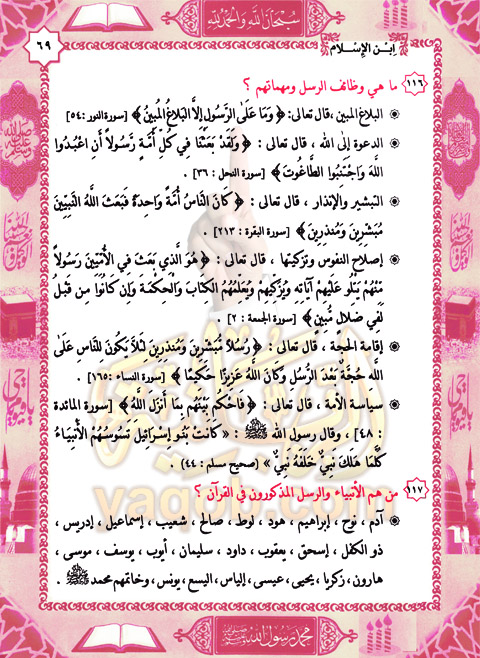 سبحان الله والحمد لله
٦٩
ابن الإسلام
١١٦ ما هي وظائف الرسل ومهماتهم ؟
البلاغ المبين ، قال تعالى: ﴿ وَمَا عَلَى الرَّسُولِ إِلَّا الْبَلَاغُ الْمُبِينُ ﴾ [سورة النور :٥٤]
الدعوة إلى الله ، قال تعالى : ﴿ وَلَقَدْ بَعَثْنَا فِي كُلِّ أُمَّةٍ رَّسُولاً أَنِ اعْبُدُوا
اللَّهَ وَاجْتَنِبُوا الطَّاغُوتَ ﴾ [سورة النحل : ٣٦] .
التبشير والإنذار ، قال تعالى : ﴿ كَانَ النَّاسُ أُمَّةً وَاحِدَةً فَبَعَثَ اللَّهُ النَّبِيِّينَ
مُبَشِّرِينَ وَمُنذِرِينَ ﴾ [سورة البقرة : ٢١٣] .
إصلاح النفوس وتزكيتها ، قال تعالى : ﴿ هُوَ الَّذِي بَعَثَ فِي الْأُمِّيِّينَ رَسُولاً
مِّنْهُمْ يَتْلُو عَلَيْهِمْ آيَاتِهِ وَيُزَكِّيهِمْ وَيُعَلِّمُهُمُ الْكِتَابَ وَالْحِكْمَةَ وَإِن كَانُوا مِن قَبْلُ
لَفِي ضَلَالٍ مُّبِينٍ ﴾ [سورة الجمعة : ٢] .
إقامة الحجة ، قال تعالى : ﴿ رُسُلاً مُّبَشِّرِينَ وَمُنذِرِينَ لِئَلاَّ يَكُونَ لِلنَّاسِ عَلَى
اللهِ حُجَّةٌ بَعْدَ الرُّسُلِ وَكَانَ اللَّهُ عَزِيزًا حَكِيمًا ﴾ [سورة النساء :١٦٥]
سياسة الأمة ، قال تعالى : ﴿ فَاحْكُم بَيْنَهُم بِمَا أَنزَلَ اللَّهُ ﴾ [سورة المائدة
: ٤٨] ، وقال رسول الله ﷺ : « كَانَتْ بَنُو إِسْرَائِيلَ تَسُوسُهُمُ الْأَنْبِيَاءُ
كُلَّمَا هَلَكَ نَبِيٌّ خَلَفَهُ نَبِيٌّ » (صحيح مسلم : ٤٤) .
١١٧ من هم الأنبياء والرسل المذكورون في القرآن ؟
آدم ، نوح ، إبراهيم ، هود ، لوط ، صالح ، شعيب ، إسماعيل ، إدريس ،
ذو الكفل ، إسحق ، يعقوب ، داود ، سليمان ، أيوب ، يوسف ، موسى ،
هارون ، زكريا ، يحيى ، عيسى ، إلياس ، اليسع ، يونس ، وخاتمهم محمد ﷺ .
yaqob.com
محمد رسول الله ﷺ